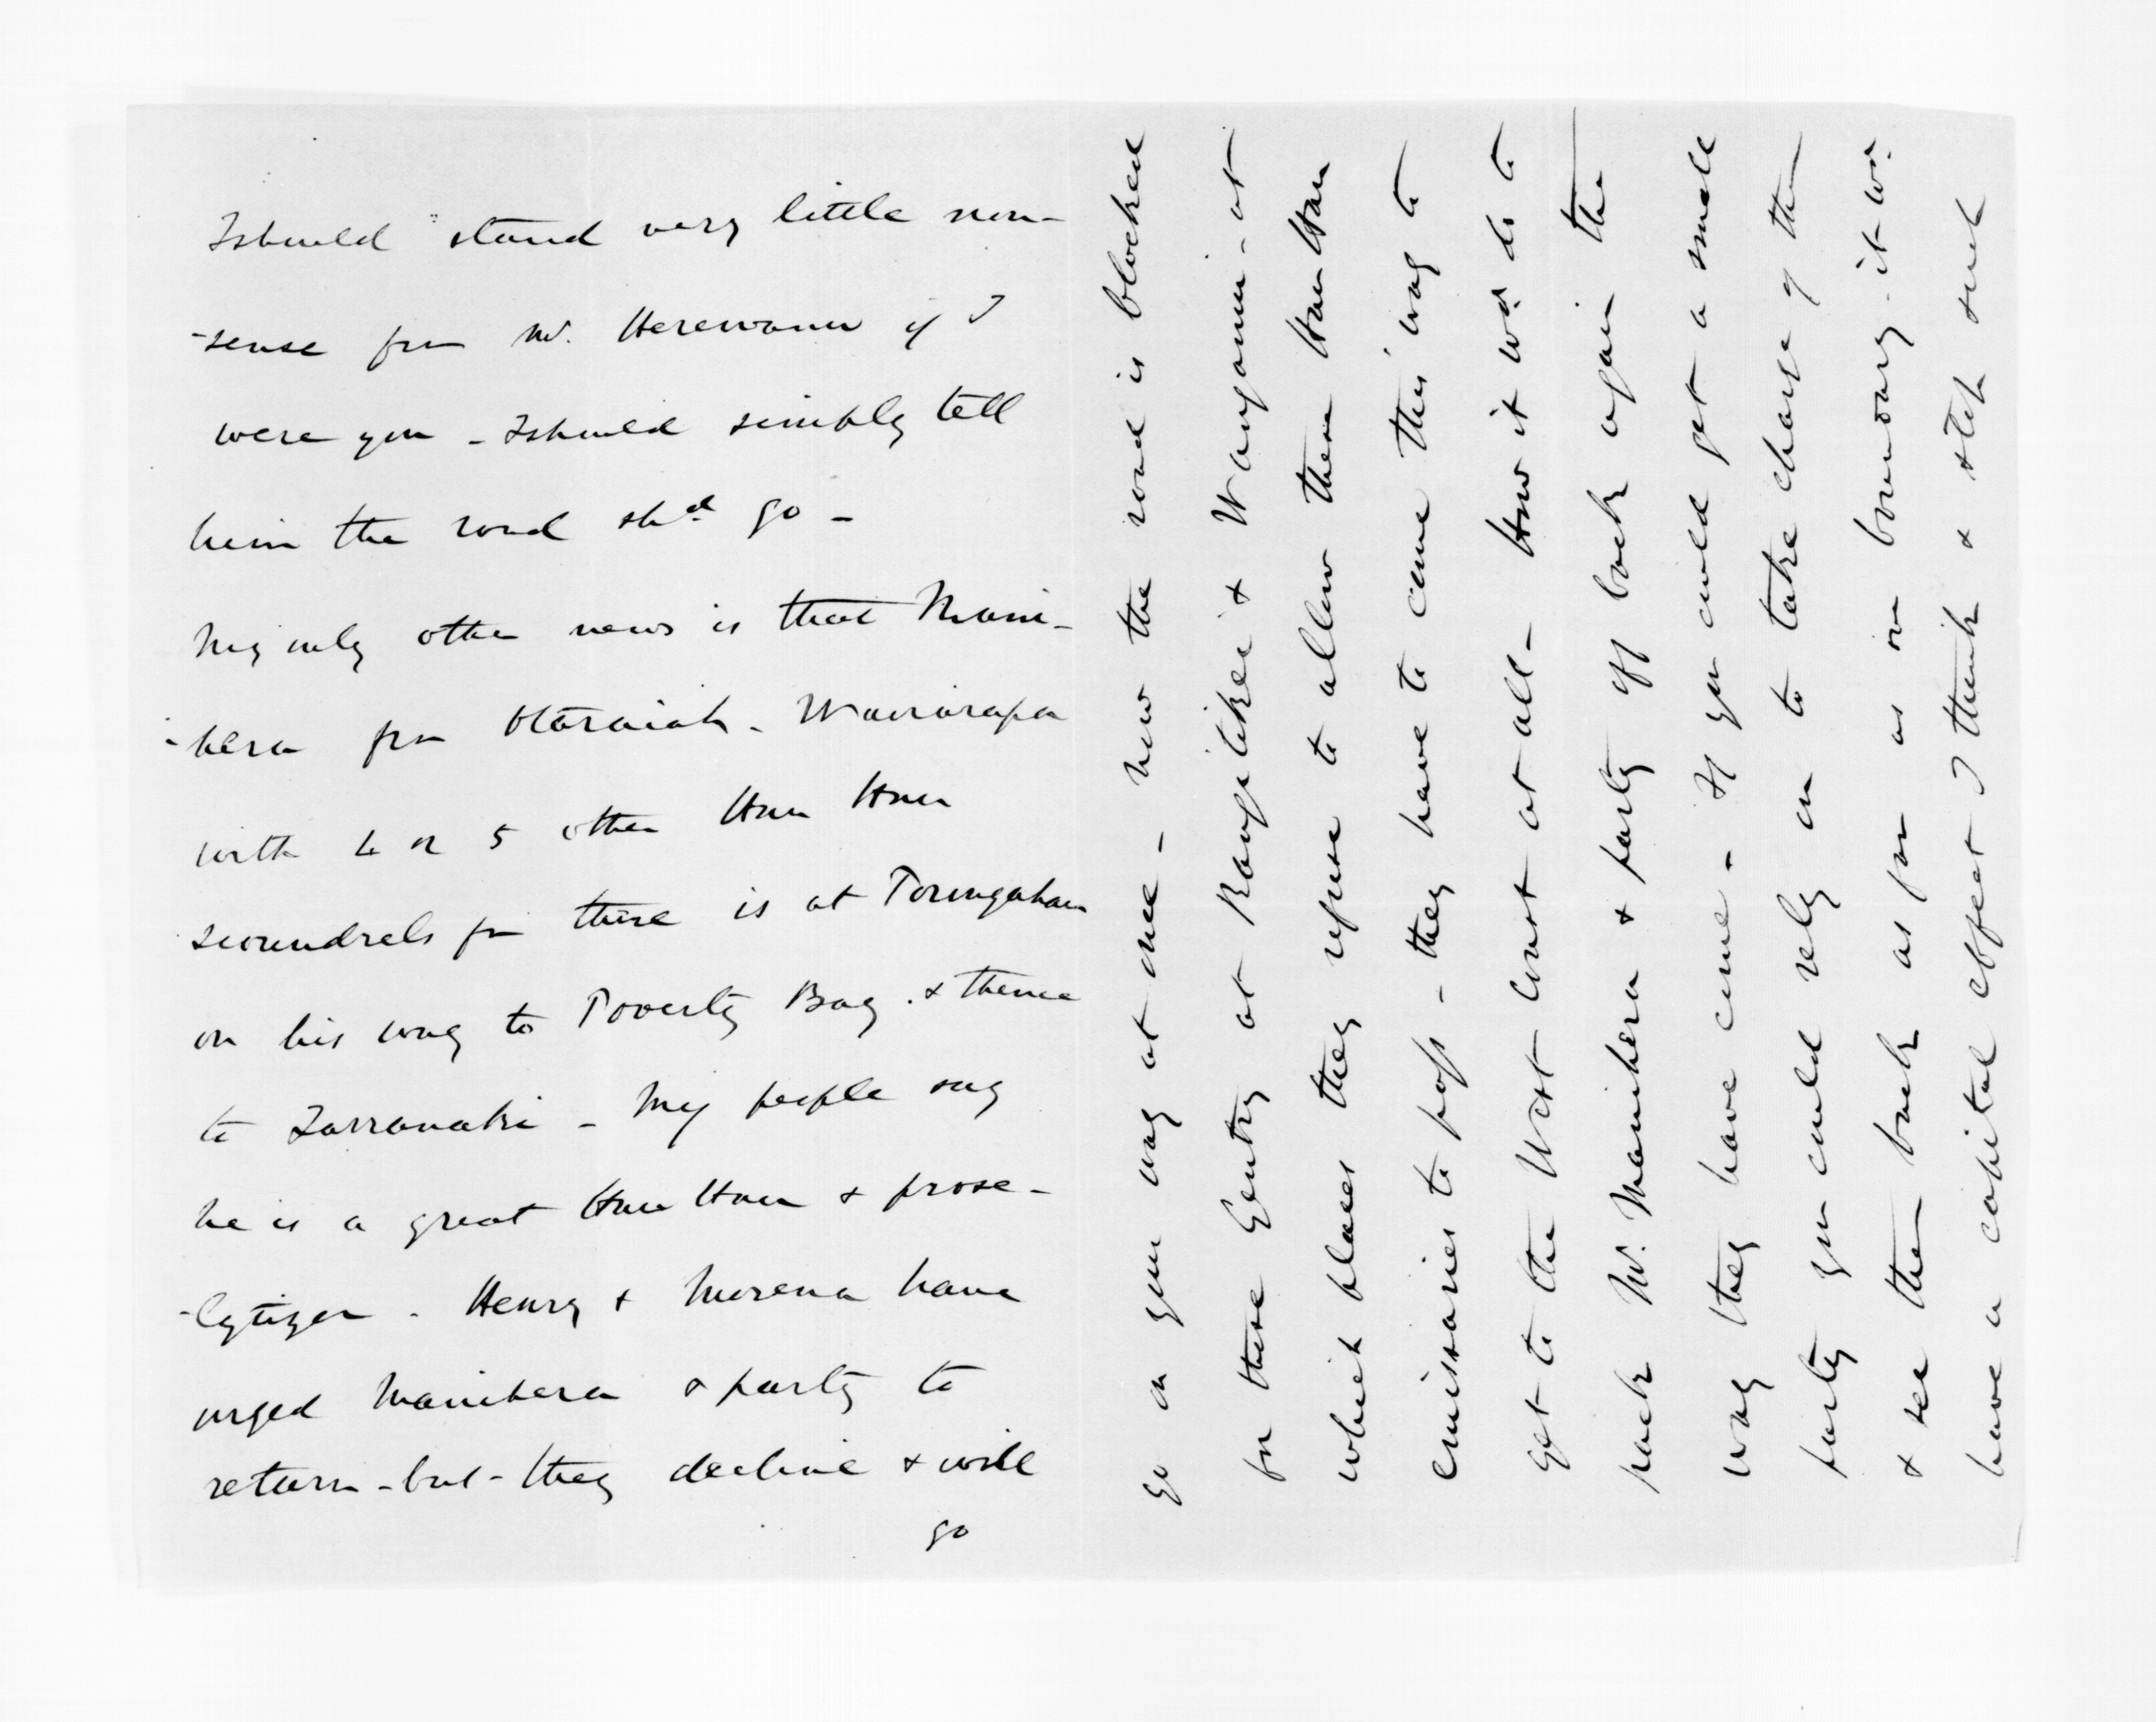 I should stand very little non-
-sense from Mr. Herewanu if I
were you - I should simply tell
him the road shd. go -
My only other news is that Mani-
-hera from Otaraiah - Wairarapa
with 4 or 5 other Hau Hau
scoundrels from there is at Porungahau
on his way to Poverty Bay. & thence
to Tarranaki - My people say
he is a great Hau Hau & prose-
-lytizer - Henry & Morena have
urged Manihera & party to
return - but - they decline & will
go
go on your way at once - now the road is blocked
for these Gentry at Rangitikei & Wanganui - at
which places they refuse to allow these Hau Hau
emissaries to pass - they have to come this way to
get to the West Coast at all - How it wd. do to
pack Mr. Manihera & party off back again the
way they have come - If you could get a small
party you could rely on to take charge of them
& see them back as far as our boundary - it wd.
have a capital effect I think & stop such